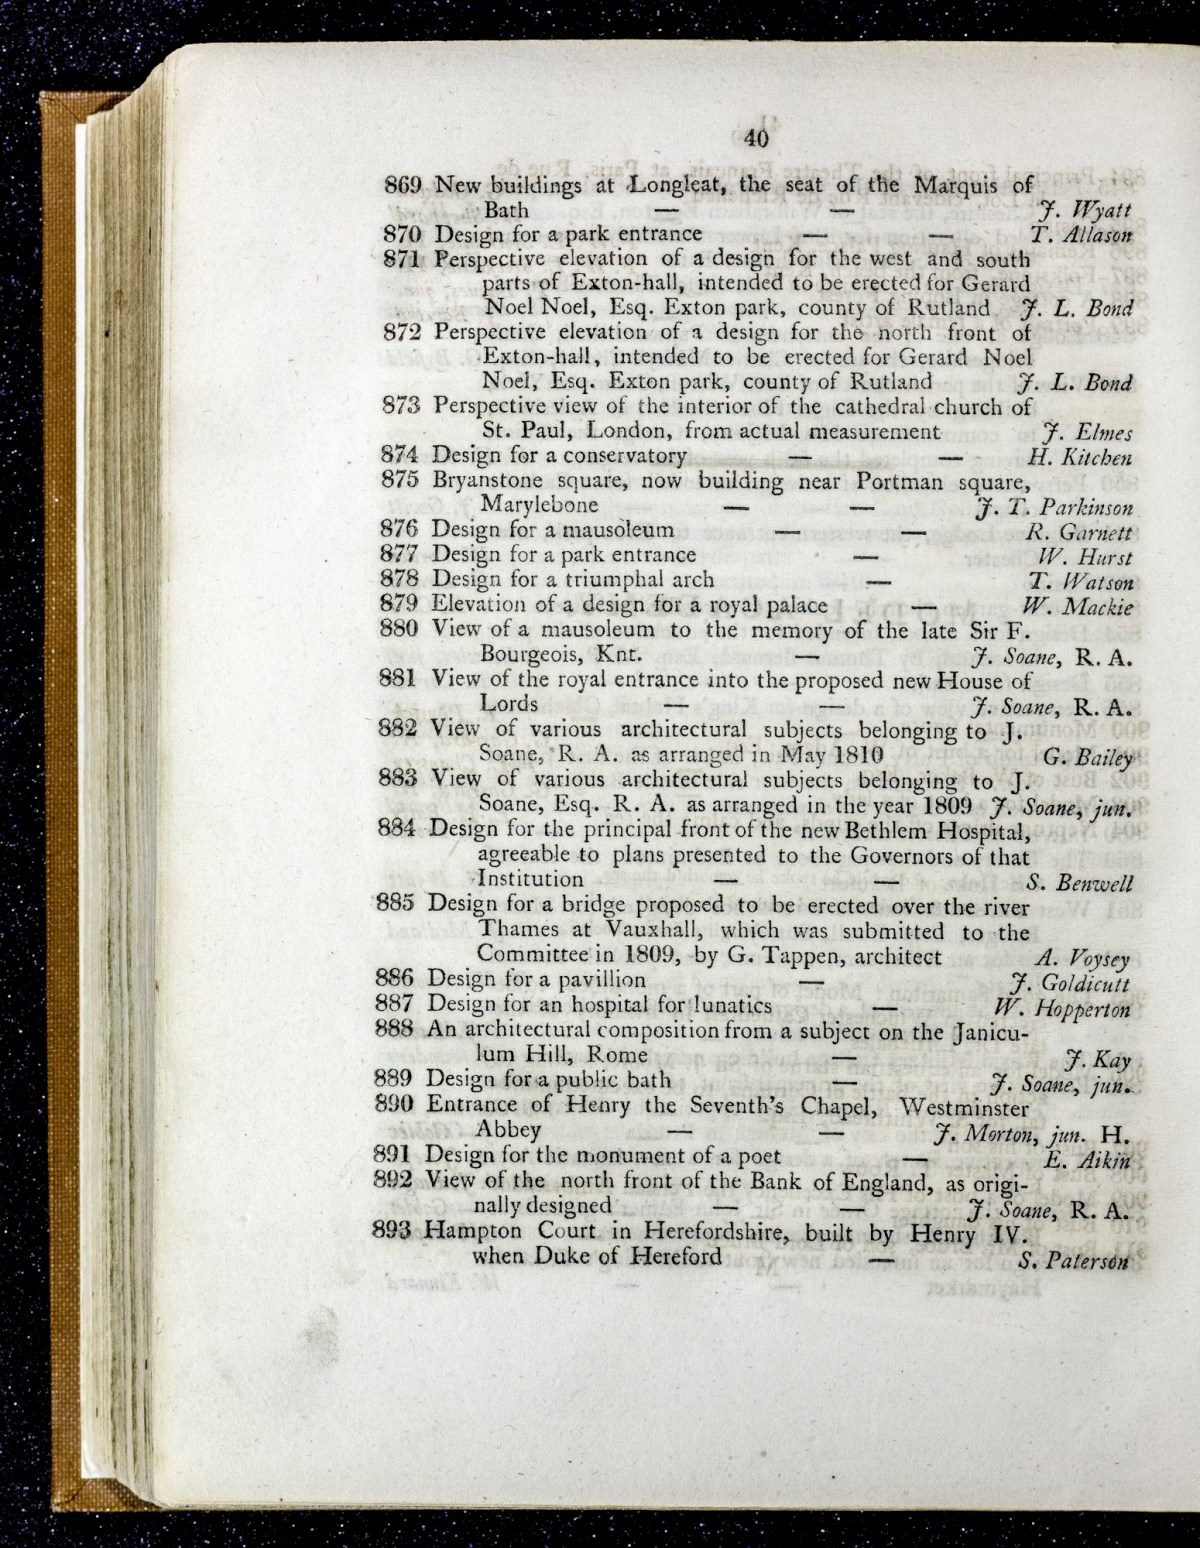 40
869 New buildings at Longleat, the seat of the Marquis of
Bath — — J. Wyatt
870 Design for a park entrance — — T. Allason
871 Perspective elevation of a design for the west and south
parts of Exton-hall, intended to be erected for Gerard
Noel Noel, Esq. Exton park, county of Rutland J. L. Bond
872 Perspective elevation of a design for the north front of
Exton-hall, intended to be erected for Gerard Noel
Noel, Esq. Exton park, county of Rutland J. L. Bond
873 Perspective view of the interior of the cathedral church of
St. Paul, London, from actual measurement J. Elmes
874 Design for a conservatory — — H. Kitchen
875 Bryanstone square, now building near Portman square,
Marylebone — — J. T. Parkinson
876 Design for a mausoleum — — R. Garnett
877 Design for a park entrance — W. Hurst
878 Design for a triumphal arch — T. Watson
879 Elevation of a design for a royal palace — W. Mackie
880 View of a mausoleum to the memory of the late Sir F.
Bourgeois, Knt. — J. Soane, R. A.
881 View of the royal entrance into the proposed new House of
Lords — — J. Soane, R. A.
882 View of various architectural subjects belonging to J.
Soane, R. A. as arranged in May 1810 G. Bailey
883 View of various architectural subjects belonging to J.
Soane, Esq. R. A. as arranged in the year 1809 J. Soane, jun.
884 Design for the principal front of the new Bethlem Hospital,
agreeable to plans presented to the Governors of that
Institution — — S. Benwell
885 Design for a bridge proposed to be erected over the river
Thames at Vauxhall, which was submitted to the
Committee in 1809, by G. Tappen, architect A. Voysey
886 Design for a pavillion — J. Goldicutt
887 Design for an hospital for lunatics — W. Hopperton
888 An architectural composition from a subject on the Janicu-
lum Hill, Rome — J. Kay
889 Design for a public bath — J. Soane, jun.
890 Entrance of Henry the Seventh's Chapel, Westminster
Abbey — — J. Morton, jun. H.
891 Design for the monument of a poet — E. Aikin
892 View of the north front of the Bank of England, as origi-
nally designed — — J. Soane, R. A.
893 Hampton Court in Herefordshire, built by Henry IV.
when Duke of Hereford — S. Paterson